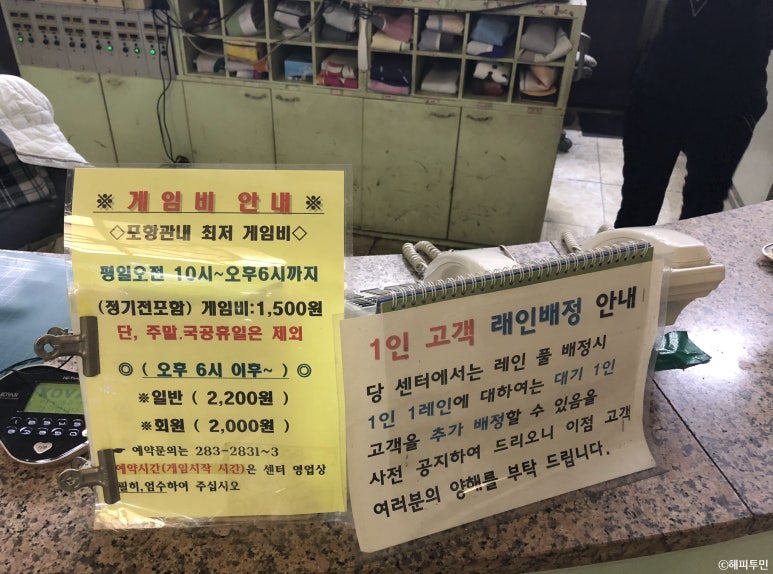 ※ 게임비 안내 ※
◇포항관내 최저 게임비◇
평일오전 10시~오후6시까지
(정기전포함) 게임비:1,500원
단, 주말.국공휴일은 제외
◎ ( 오후 6시 이후~ ) ◎
※일반 ( 2,200원 )
※회원 ( 2,000원 )
☛ 예약문의는 283-2831~3
예약시간(게임시작 시간)은 센터 영업상
필히,엄수하여 주십시오
1인 고객 래인배정 안내
당 센터에서는 레인 풀 배정시
1인 1레인에 대하여는 대기 1인
고객을 추가 배정할 수 있음을
사전 공지하여 드리오니 이점 고객
여러분의 양해를 부탁 드립니다.
©해피투민